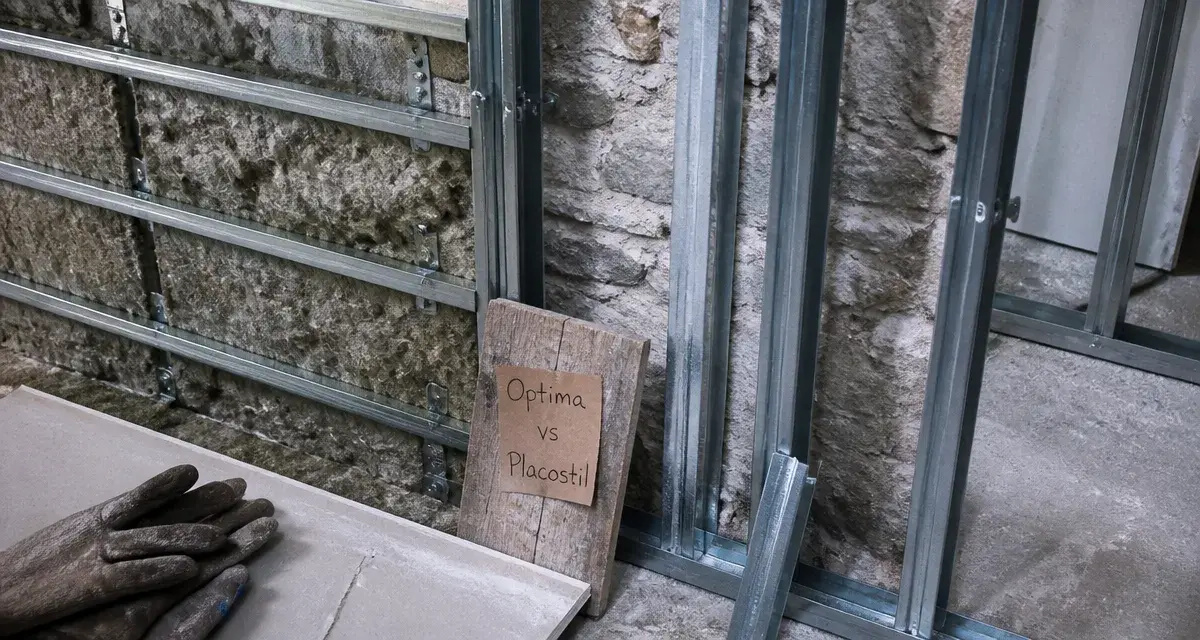 Optima
vs
Placostil